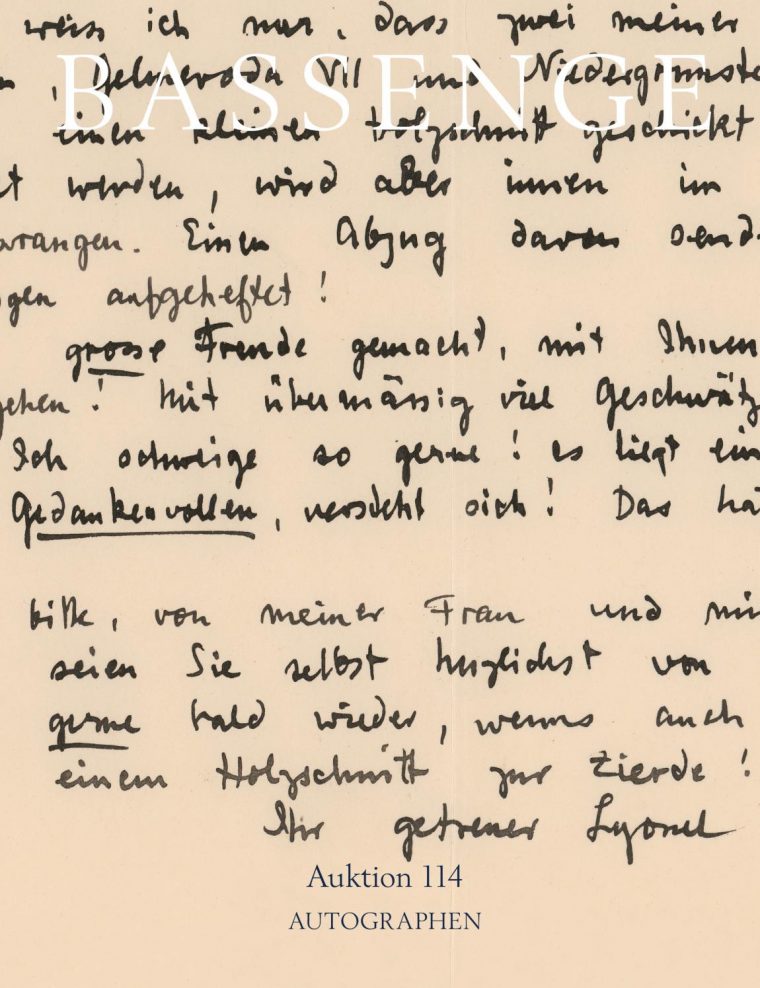 weiss ich nur, dass zwei meiner
BASSENGE
, Gelmeroda VII und Niedergrunste
einen kleinen Holzschnitt geschickt
t werden, wird aber innen im
orangen. Einen Abzug davon send
gen aufgeheftet!
grosse Freude gemacht, mit Ihnen
gehen! Mit übermässig viel Geschwätz
Ich schweige so gerne! es liegt ein
Gedankenvollen, versteht sich! Das hä
bitte, von meiner Frau und mi
seien Sie selbst herzlichst von
gerne bald wieder, wenns auch
einem Holzschnitt zur Zierde!
Ihr getreuer Lyonel
Auktion 114
AUTOGRAPHEN